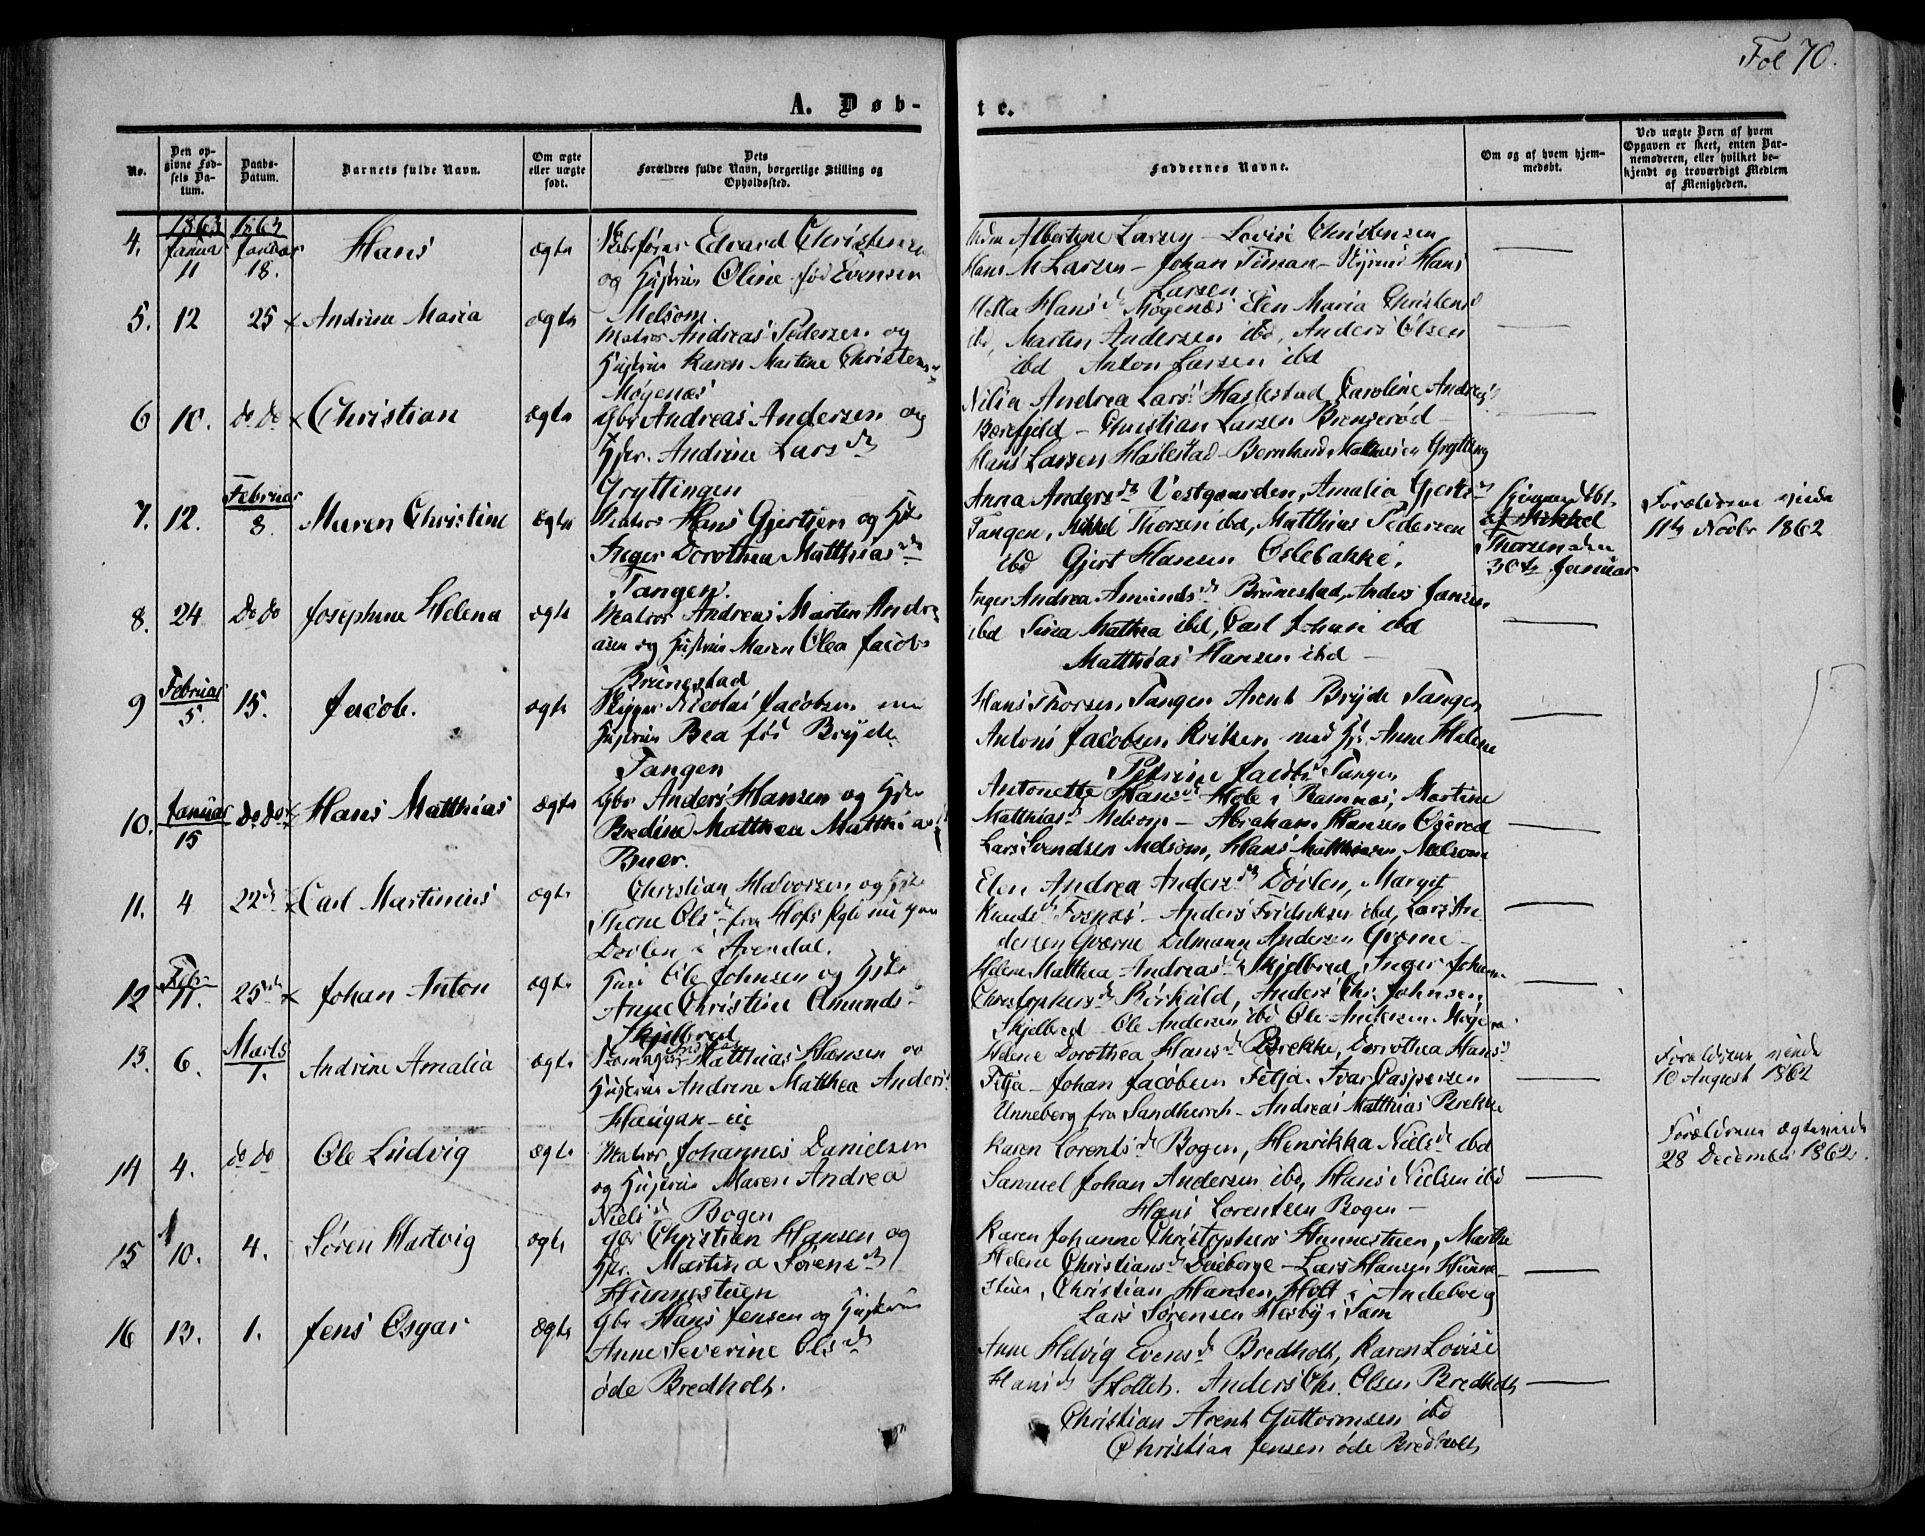 Fol 70.
A. Døb-
te.
No.
Den opgivne Fødsels Datum.
Daabs-Datum.
Barnets fulde Navn.
Om ægte eller uægte født.
Dets Forældres fulde Navn, borgerlige Stilling og Opholdssted.
Faddernes Navne.
Om og af hvem hjemmedøbt.
Ved uægte Børn af hvem Opgaven er skeet, enten Barnemoderen, eller hvilket bekjendt og troværdigt Medlem af Menigheden.
4. 1863 Januar 11 1863 Januar 18. Hans ægte
Edvard Christensen
og Hustru Oline fød Evensen
Melsom
Albertine Larsen - Lovise Christensen
Hans M Larsen - Johan Timan - Hans
Larsen
5. 12 25 x Andrine Maria ægte
Matros Andreas Pedersen og
Hustru Karen Martine Christens
Møgenæs
Hans d Møgenæs Elen Maria Christens
ibd, Martin Andersen ibd, Anders Olsen
ibd Anton Larsen ibd
6 10. do do x Christian ægte
Gbr Andreas Andersen og
Hstr. Andrine Lars dr
Gryttingen
Andrea Lars Haslestad Caroline Andreas
Bærefjeld - Christian Larsen Brengerød -
Hans Larsen Haslestad - Bernhard Mathisen Grytting
7. 12. Februar 8. Maren Christine ægte
Matros Hans Gjertsen og Hstr
Inger Dorothea Matthias dr
Tangen.
Anna Anders dr Vestgaarden, Amalia Gjerts
Tangen, Mikkel Thorsen ibd, Matthias Pedersen
ibd Gjert Hansen Oslebakke.
Hjemmedøbt
af Mikkel
Thorsen den
30te Januar
Forældrene viede
11te Novbr 1862
8. 24 do do Josephine Helena ægte
Matros Andreas Martin Andre-
asen og Hustru Maren Olea Jacobs
Brunestad
Inger Andrea Amunds d Brunestad, Anders Jansen
ibd Tina Mathea ibd, Carl Johan ibd
Matthias Hansen ibd -
9 Februar 5. 15. Jacob. ægte
Skipper Nicolai Jacobsen
Hustru Bea fød Bryde
Tangen
Hans Thorsen Tangen Arent Bryde Tangen
Antoni Jacobsen Eriksen med Hst. Anne Helene
Petrine Jacobs Tangen
10. Januar 15 do do x Hans Matthias ægte
Gbr Anders Hansen og Hstr
Bredine Matthea Matthias
Buer.
Antonette Hans d Hole i Ramnæs, Martine
Matthias d Melsom - Abraham Hansen Oserød
Lars Svendsen Melsom, Hans Mathisen Melsom
11. 4 22d x Carl Martinius ægte
Christian Halvorsen og Hstr
Thene Ols d fra Hofs Pgld nu paa
Døvlen i Arendal.
Elen Andrea Anders dr Døvlen, Margit
Knuds d Fosnæs - Anders Fredriksen ibd, Lars An-
dersen Gværne Edmann Andersen Gværne -
12 Febr 11. 25de x Johan Anton ægte
Ole Johnsen og Hstr
Anne Christine Amunds
Skjelbred
Helene Matthea Andreas d Skjelbred, Inger Johan
Christophers d Bøkald, Anders Chr. Johnsen
Skjelbred - Ole Andersen ibd Ole Andersen Høyera
13. 6. Marts 1. Andrine Amalia ægte
Matthias Hansen og
Hustrue Andrine Mathea Anders
Haugan eie
Helene Dorothea Hans d Brekke, Dorothea Hans
Fetja - Johan Jacobsen Fetja. Ivar Caspersen
Unneberg fra Sandherred - Andreas Matthias Brekke
Forældrene viede
10 August 1862
14 4. do do Ole Ludvig ægte
Matros Johannes Danielsen
og Hustru Maren Andrea
Niels d Bogen
Karen Lorents d Bogen, Henrikka Niels d ibd
Samuel Johan Andersen ibd, Hans Nielsen ibd
Hans Lorentsen Bogen -
Forældrene ægteviede
28 December 1862.
15 10. 4. Søren Hartvig ægte
Gbr Christian Hansen og
Hstr. Martina Sørens dr
Hunnestuen
Karen Johanne Christophers Hunnestuen, Marthe
Helene Christians d Døieborge - Lars Hansen Hunne-
stuen, Christian Hansen Holt i Andeboeg
Lars Sørensen Hesby i Sæm
16 13. 1. Jens Osgar ægte
Gbr Hans Jensen og Hustrue
Anne Severine Ols dr
øde Bredholt.
Anne Helvig Evens d Bredholt, Karen Lovise
Hans d Holtet. Anders Chr. Olsen Bredholt
Christian Arent Guttormsen ibd
Christian Jensen øde Bredholt